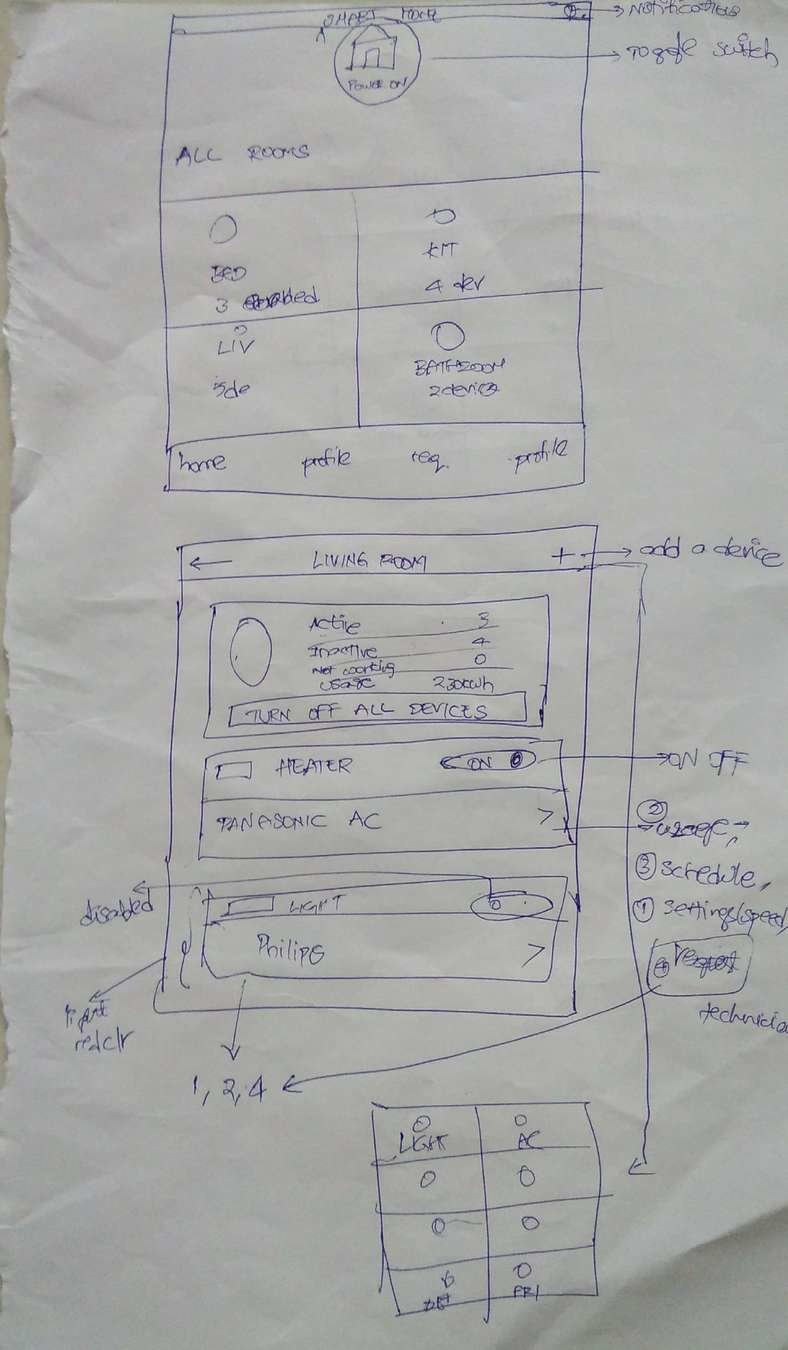 SMART HOME
Notifications
Toggle switch
POWER ON
ALL ROOMS
BED
KIT
4 dev
3
LIV
BATHROOM
5de
2device
home profile req. profile
LIVING ROOM + add a device
Active 3
Inactive 4
Not working 0
USAGE 230kwh
TURN OFF ALL DEVICES
HEATER ON ON OFF
PANASONIC AC >
2 usage,
3 schedule,
disabled
LIGHT
1 settings(speed)
Philips >
4 request
technicia
light
red clr
1, 2, 4
LIGHT AC
FRI